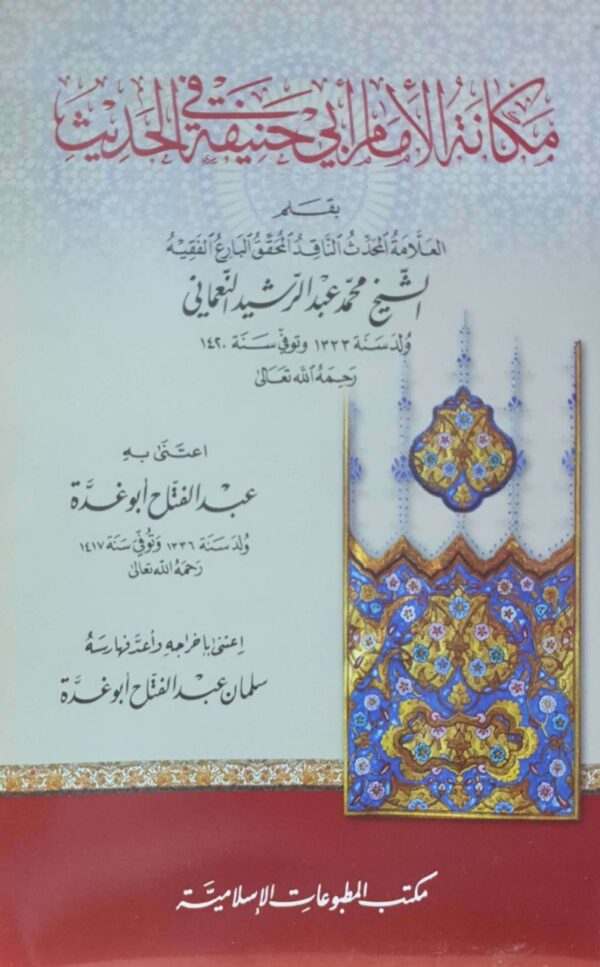 مَكَانَةُ الإِمَامِ أَبِي حَنِيفَةَ فِي الحَدِيثِ
بقلم
العَلَّامَةُ المُحَدِّثُ النَّاقِدُ المُحَقِّقُ البَارِعُ الفَقِيهُ
الشيخ محمد عبد الرشيد النعماني
وُلِدَ سَنَة ١٣٣٣ وَتُوُفِّيَ سَنَة ١٤٢٠
رَحِمَهُ اللهُ تَعَالى
اعتَنَى بِهِ
عبد الفتاح أبو غدة
وُلِدَ سَنَة ١٣٣٦ وَتُوُفِّيَ سَنَة ١٤١٧
رَحِمَهُ الله تعالى
اعتنى بإخراجه وأعدَّ فهارسَهُ
سلمان عبد الفتاح أبو غدة
مكتب المطبوعات الإسلامية